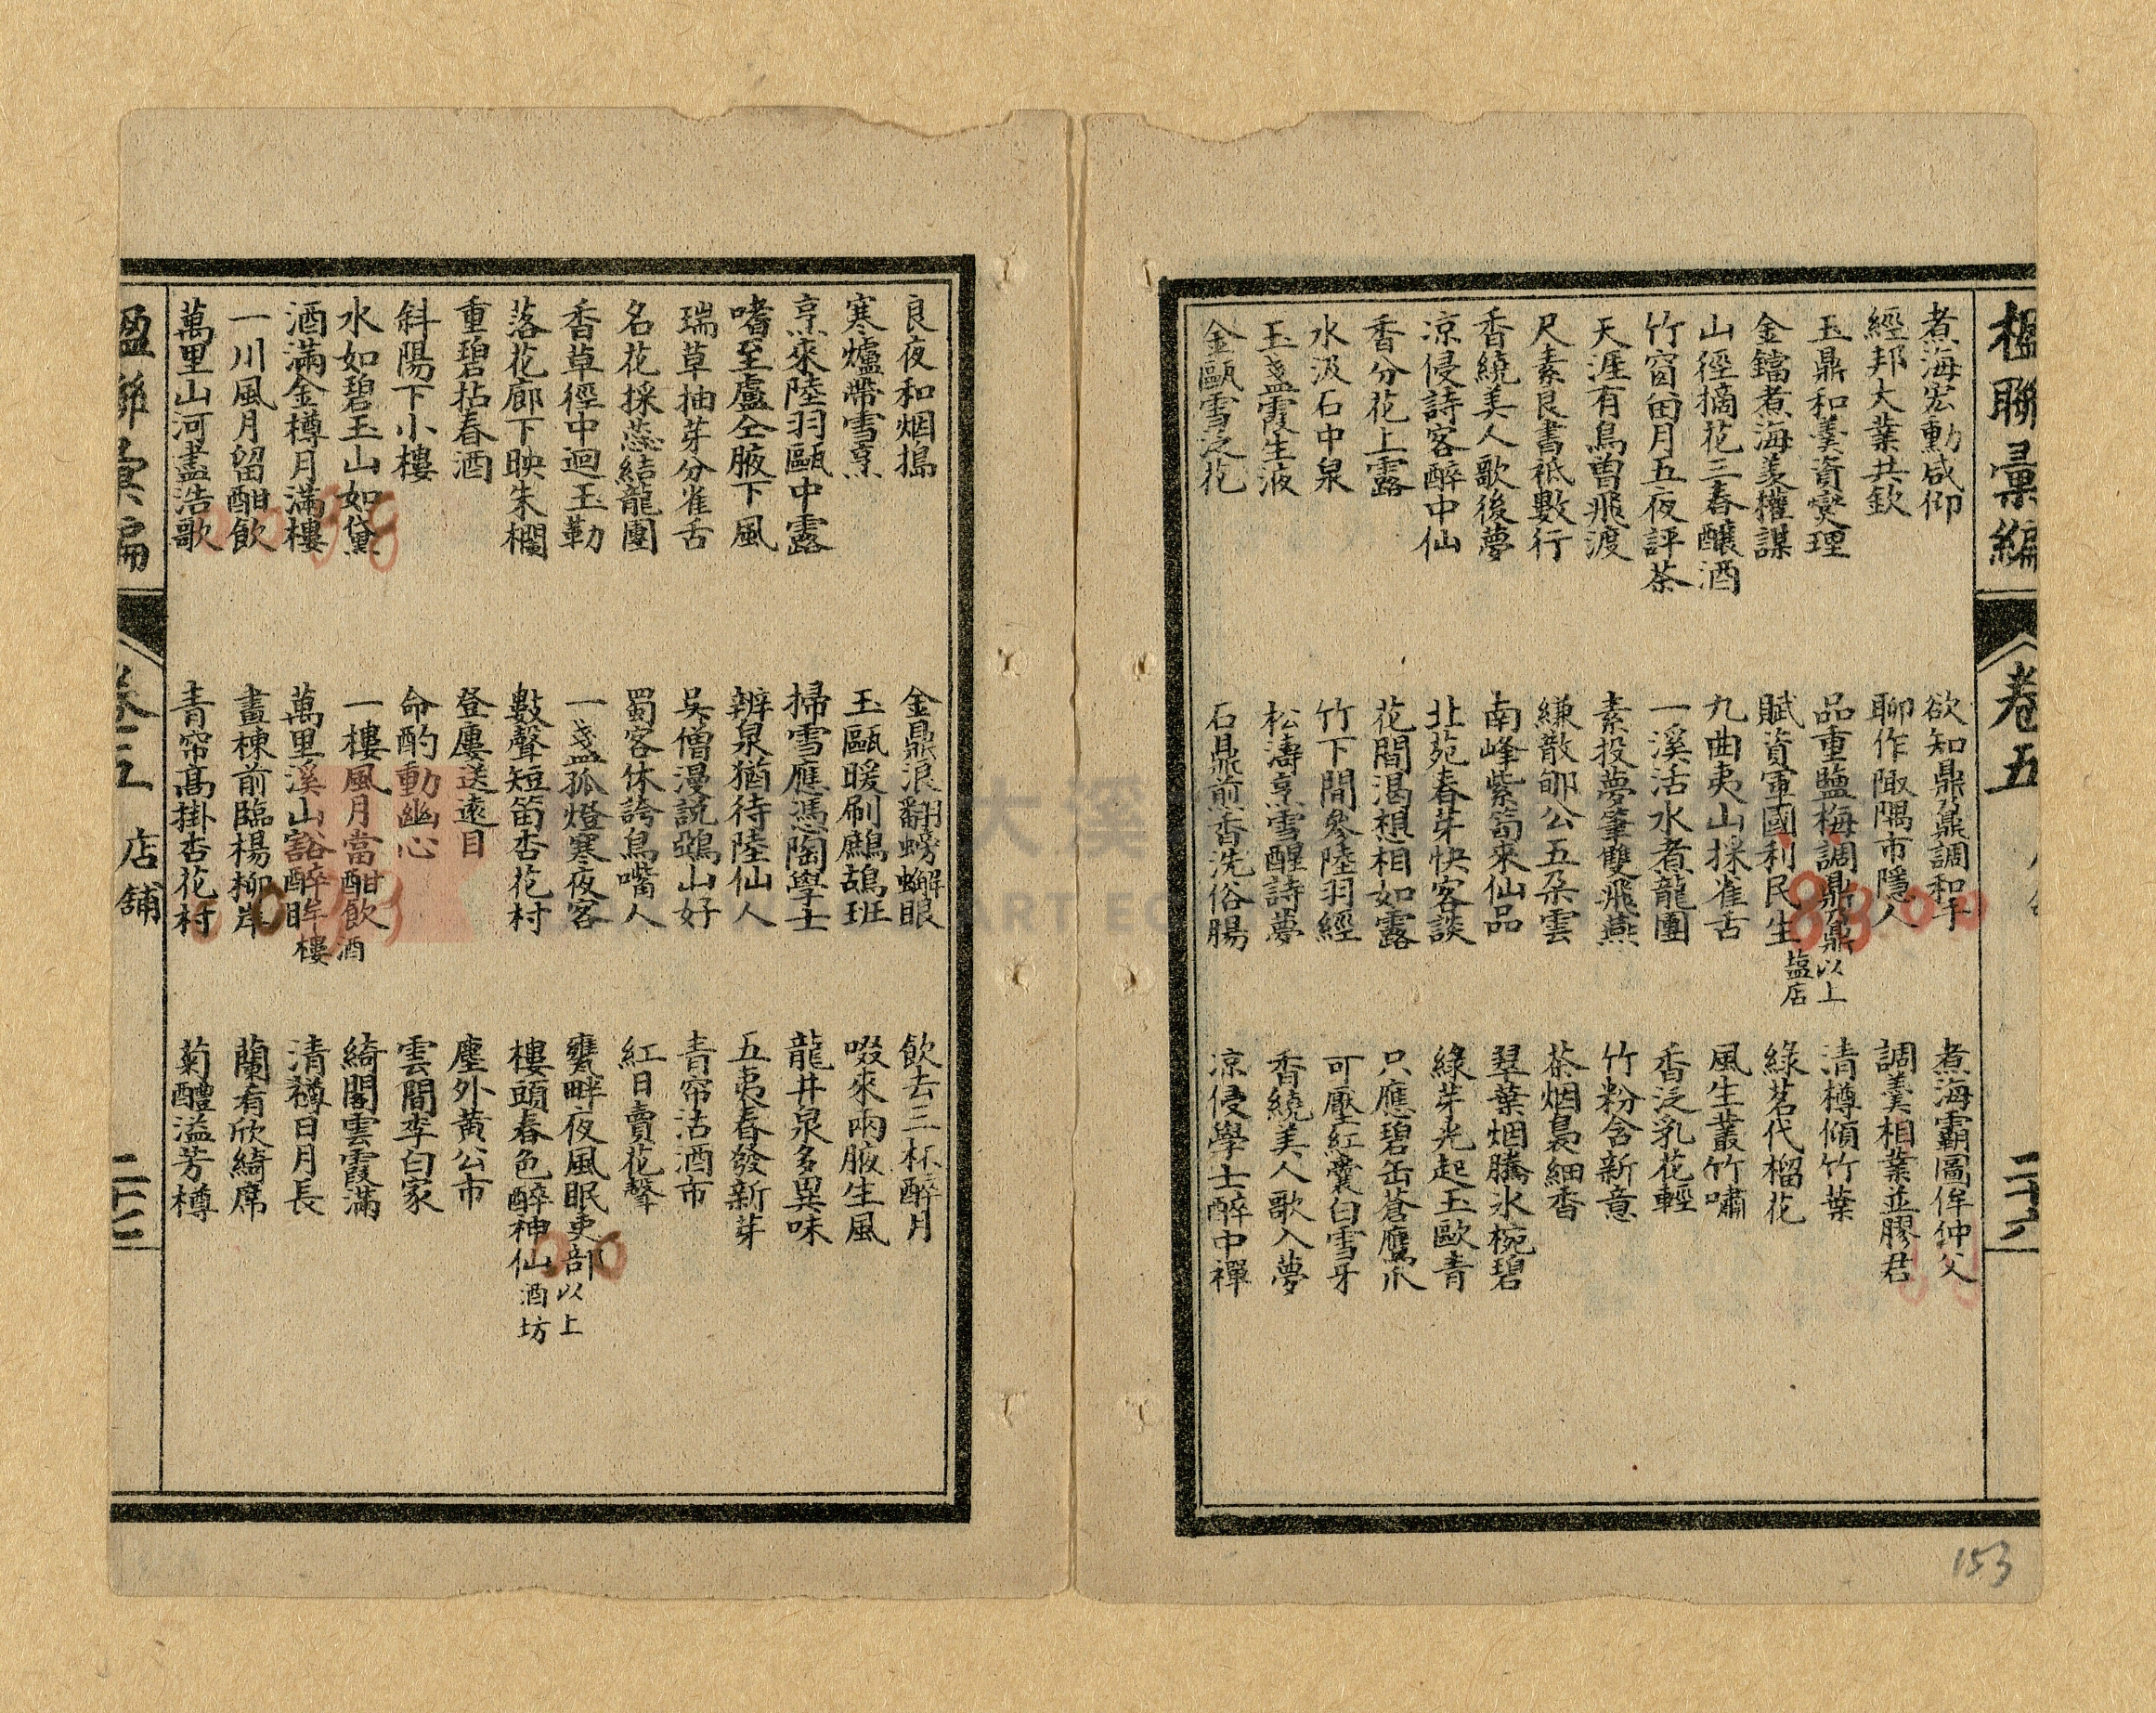 楹聯彙編
卷五
二十六
煮海宏勳咸仰
欲知鼎鼐調和手
煮海霸圖侔仲父
經邦大業共欽
聊作陬隅市隱人
調羹相業並膠君
玉鼎和羹資爕理
品重鹽梅調鼎鼐以上
清樽傾竹葉
金鐺煮海羨權謀
賦資軍國利民生塩店
綠茗代榴花
山徑摘花三春釀酒
九曲夷山採雀舌
風生叢竹嘯
竹窗留月五夜評茶
一溪活水煮龍團
香泛乳花輕
天涯有鳥曾飛渡
素投夢肇雙飛燕
竹粉含新意
尺素良書祗數行
縑散郇公五朵雲
茶烟裊細香
香繞美人歌後夢
南峰紫筍來仙品
翠葉烟騰氷椀碧
凉侵詩客醉中仙
北苑春芽快客談
綠芽光起玉歐青
香分花上露
花間渴想相如露
只應碧缶蒼鷹爪
水汲石中泉
竹下間參陸羽經
可壓紅囊白雪牙
玉盞霞生液
松濤烹雪醒詩夢
香繞美人歌入夢
金甌雪泛花
石鼎煎香洗俗腸
凉侵學士醉中禪
良夜和烟搗
金鼎浪翻螃蠏眼
飲去三杯醉月
寒爐帶雪烹
玉甌暖刷鷓鴣班
啜來兩腋生風
烹來陸羽甌中露
掃雪應憑陶學士
龍井泉多異味
嗜至盧仝腋下風
辨泉猶待陸仙人
五夷春發新芽
瑞草抽芽分雀舌
吳僧漫說鵶山好
青帘沽酒市
名花採蕊結龍團
蜀客休誇鳥嘴人
紅日賣花聲
香草徑中迴玉勒
一盞孤燈寒夜客
甕畔夜風眠吏部以上
落花廊下映朱欄
數聲短笛杏花村
樓頭春色醉神仙酒坊
重碧拈春酒
登廔送遠目
塵外黃公市
斜陽下小樓
命酌動幽心
雲間李白家
水如碧玉山如黛
一樓風月當酣飲酒
綺閣雲霞滿
酒滿金樽月滿樓
萬里溪山豁醉眸樓
清樽日月長
一川風月留酣飲
畫棟前臨楊柳岸
蘭肴欣綺席
萬里山河盡浩歌
青帘高掛杏花村
菊醴溢芳樽
楹聯彙編
卷五
店舖
二十七
大溪
153